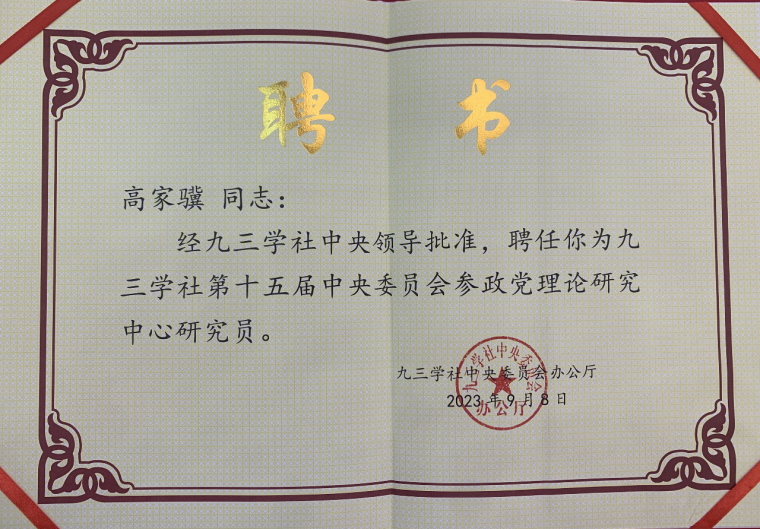 聘 书
高家骥 同志：
经九三学社中央领导批准，聘任你为九
三学社第十五届中央委员会参政党理论研究
中心研究员。
九三学社中央委员会办公厅
2023 年 9 月 8 日
九三学社中央委员会
办公厅